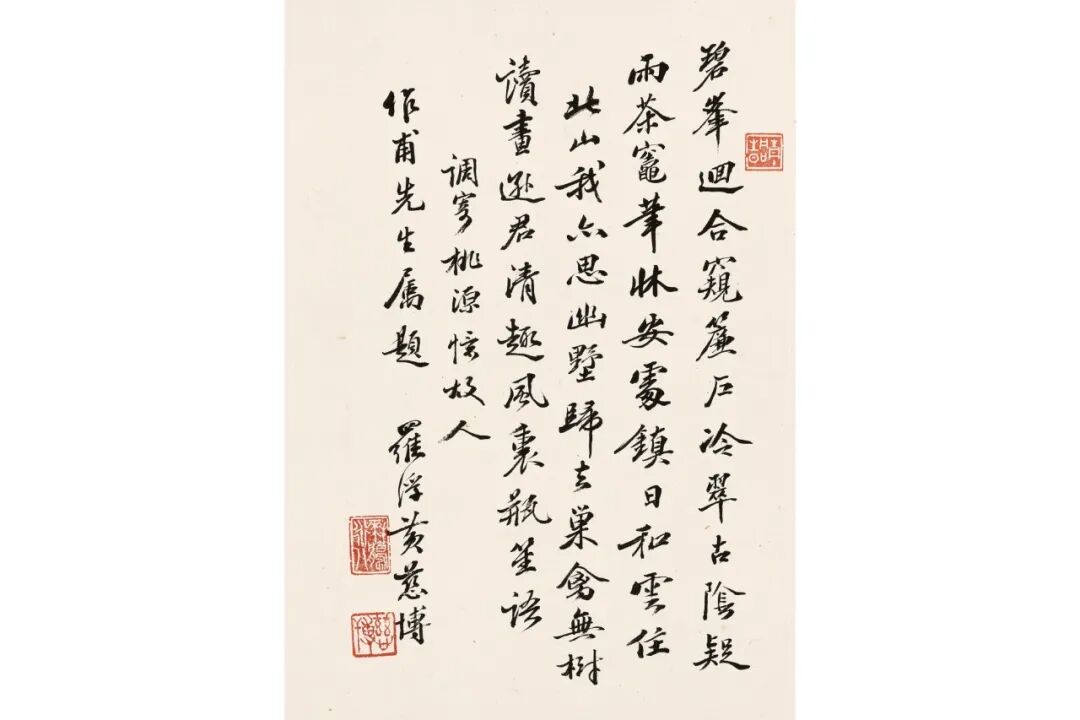 碧峯迴合窺簾戶冷翠古陰疑
雨茶竈筆牀安處鎮日和雲住
北山我亦思幽墅歸去巢禽無樹
讀畫遜君清趣風裏瓶笙語
調寄桃源憶故人
作甫先生屬題 羅浮黃慈博
慈博